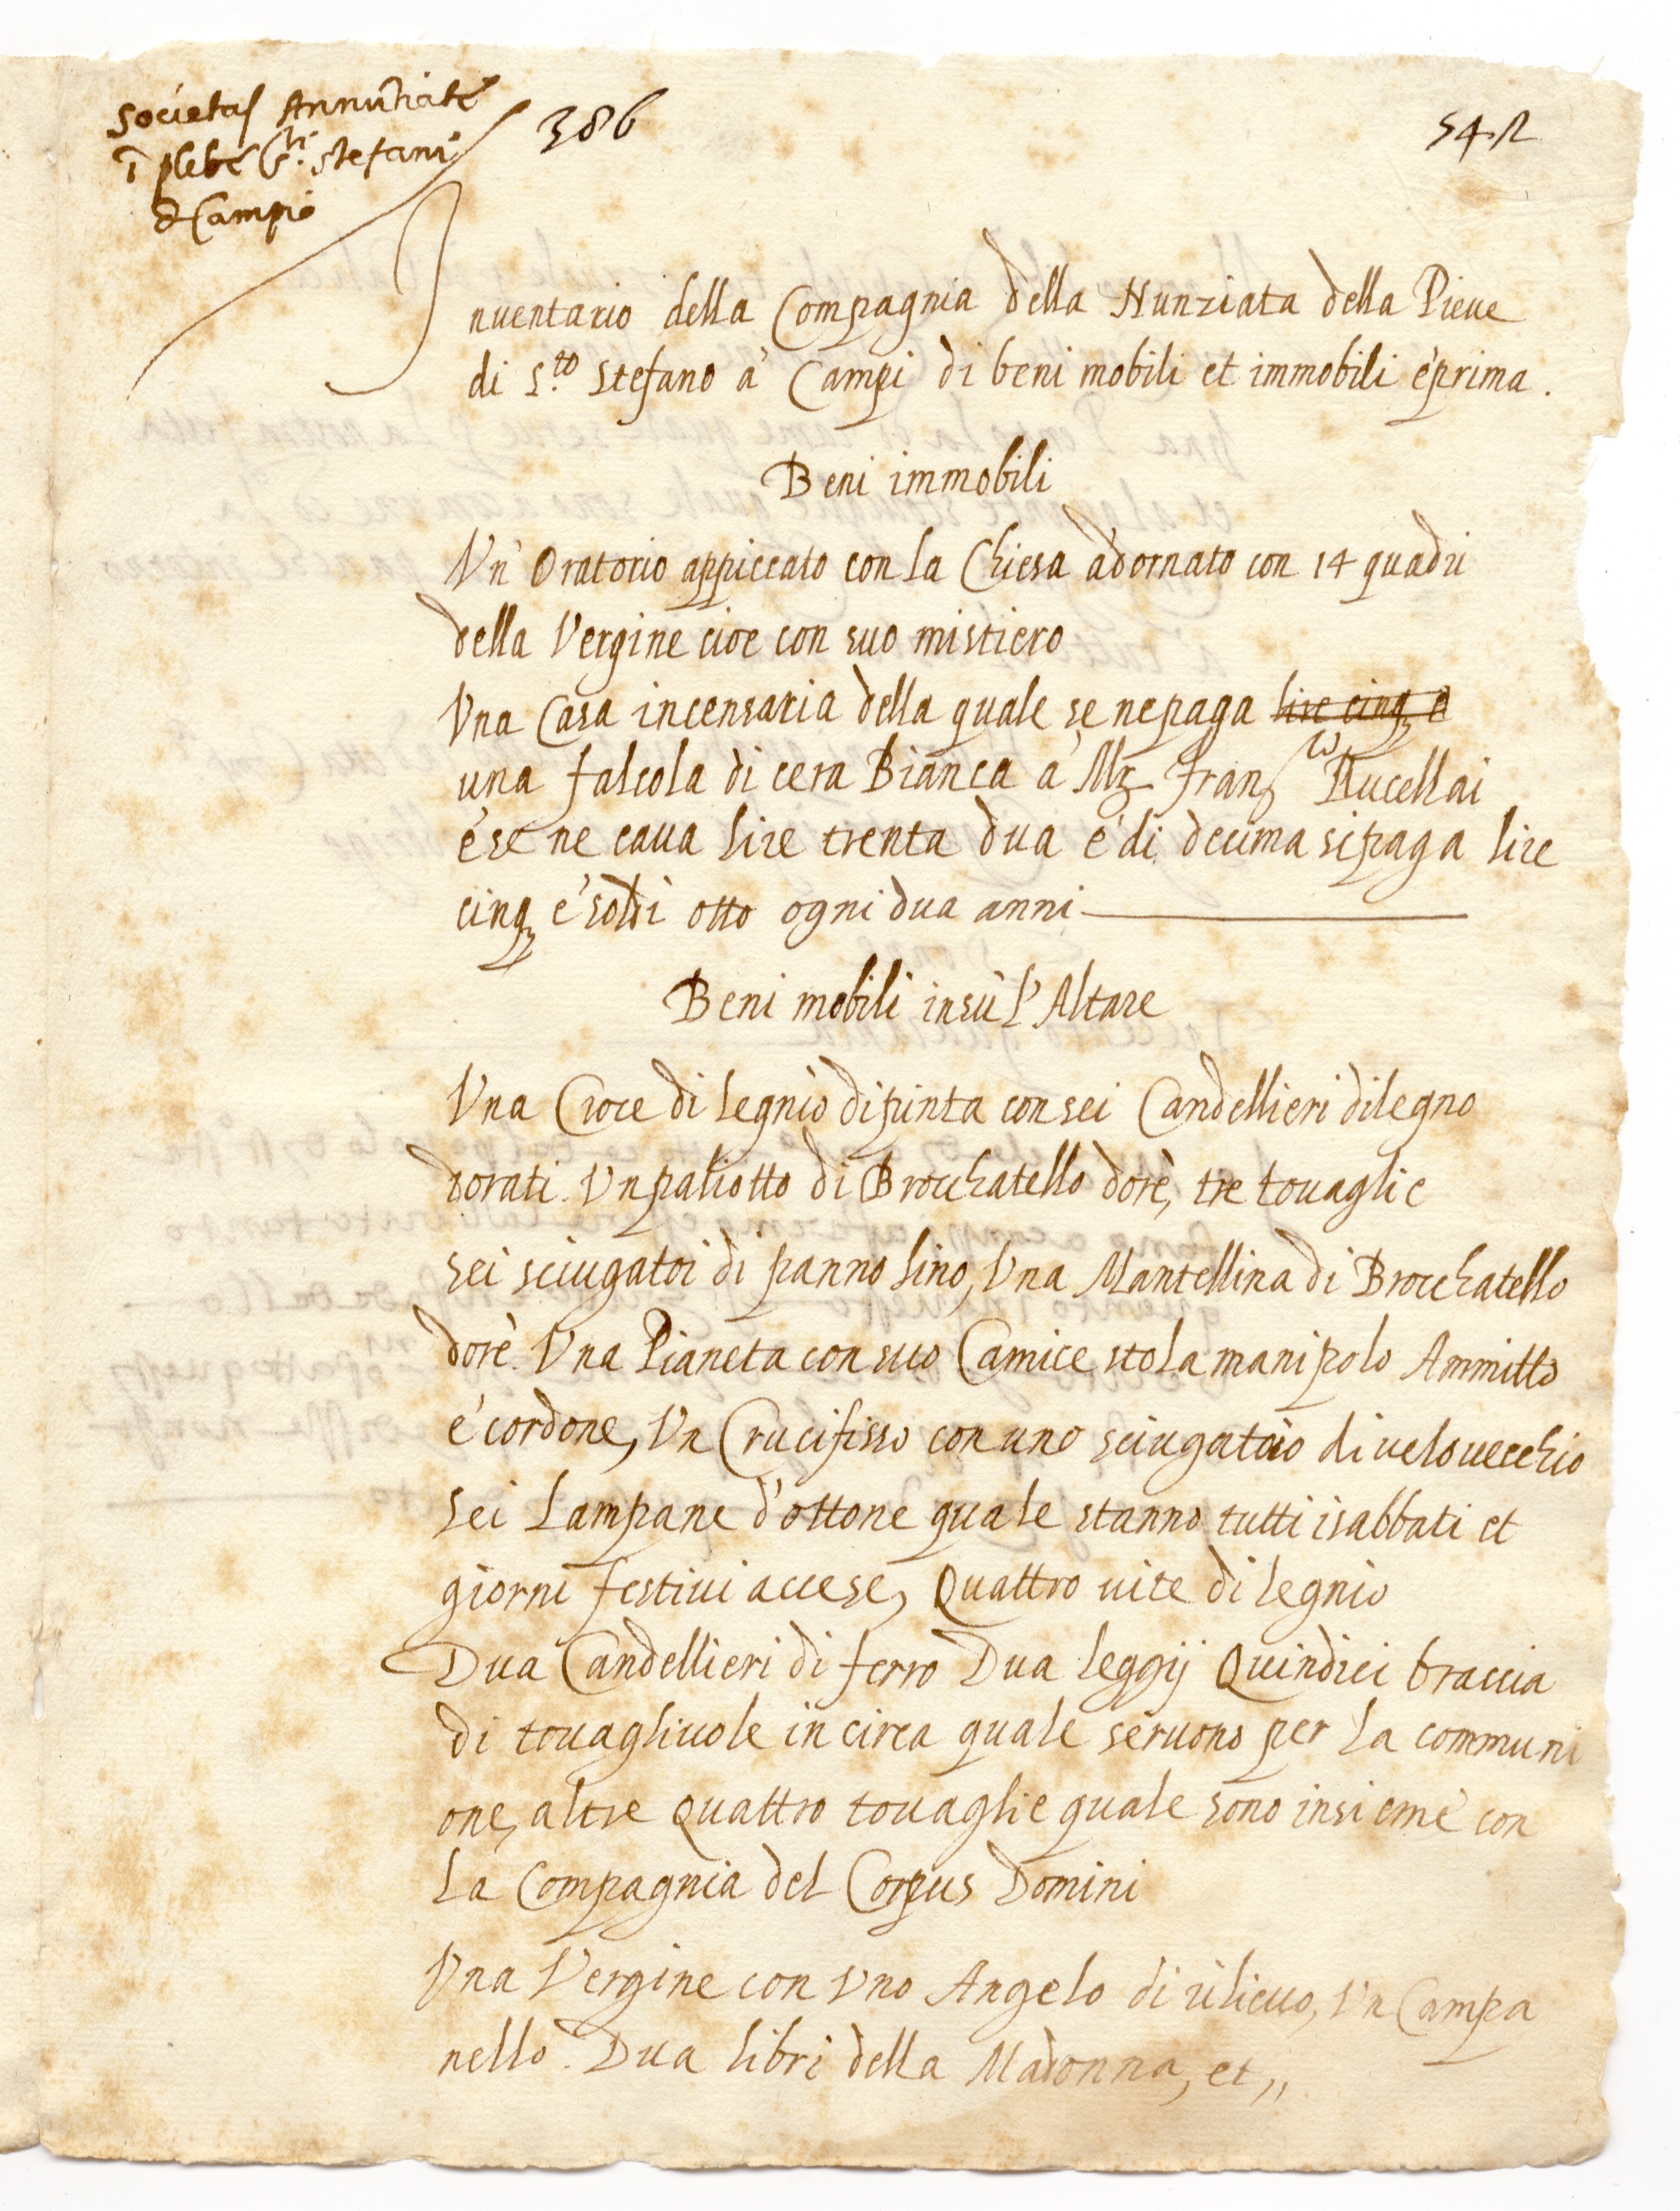 Societas Annũtiate
ĩ plebe S.ti Stefani
d Campi
386
542
Inuentario della Compagnia della Nunziata della Pieue
di S.to Stefano à Campi di beni mobili et immobili è prima.
Beni immobili
Vn' Oratorio appiccato con la Chiesa adornato con 14 quadri
della Vergine cioe con suo mistiero
Vna Casa incensaria della quale se ne paga lire cinq e
una falcola di cera Bianca à Mr. Fran.co Rucellai
è se ne caua lire trenta dua è di decima si paga lire
cinq è soldi otto ogni dua anni
Beni mobili insù l'Altare
Vna Croce di legnio dipinta con sei Candellieri di legno
dorati. Vn paliotto di Brocchatello dorè, tre touaglie
sei sciugatoi di panno lino, Vna Mantellina di Brocchatello
dorè. Vna Pianeta con suo Camice stola manipolo Ammitto
è cordone, Vn Crucifisso con uno sciugatoio di uelo uecchio
sei Lampane d'ottone quale stanno tutti i sabbati et
giorni festiui accese, Quattro uite di legnio
Dua Candellieri di ferro Dua leggij Quindici braccia
di touagliuole in circa quale seruono per la communi
one, altre quattro touaglie quale sono insieme con
la Compagnia del Corpus Domini
Vna Vergine con Vno Angelo di rilieuo, Vn Campa
nello. Dua libri della Madonna, et,,